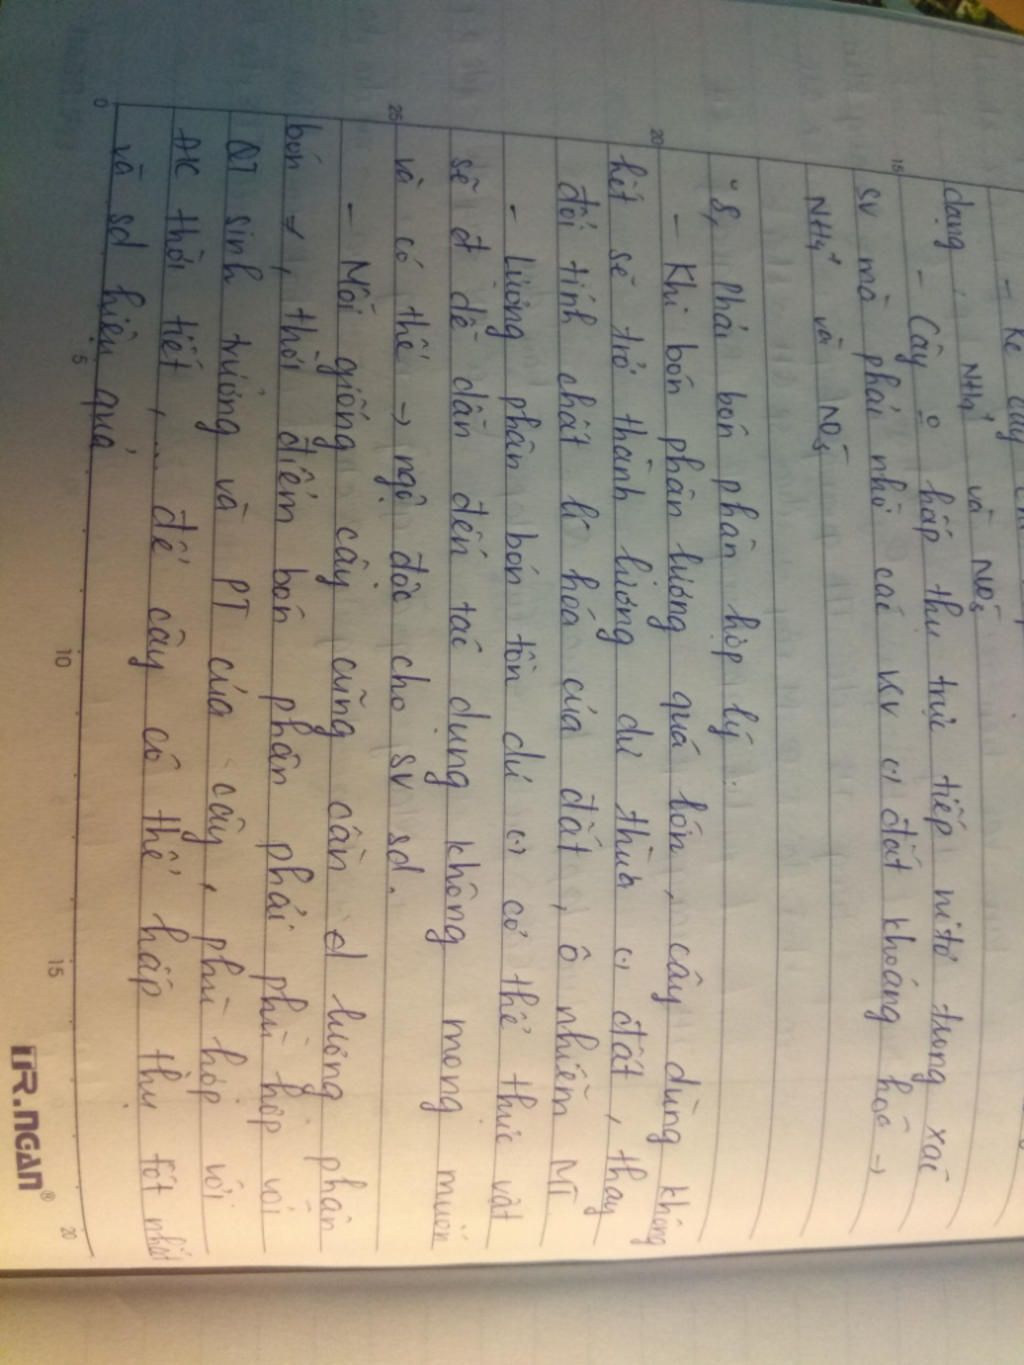 - Rễ cây
dạng NH₄⁺ và NO₃⁻
- Cây o hấp thụ trực tiếp nitơ trong xác
sv mà phải nhờ các vsv đất khoáng hoá →
NH₄⁺ và NO₃⁻
8, Phải bón phân hợp lý:
- Khi bón phân lượng quá lớn, cây dùng không
hết sẽ trở thành lượng dư thừa đất, thay
đổi tính chất lí hoá của đất, ô nhiễm MT
- Lượng phân bón tồn dư có thể thực vật
sẽ đ dễ dẫn đến tác dụng không mong muốn
và có thể → ngộ độc cho sv sd.
- Mỗi giống cây cũng cần d lượng phân
bón ≠, thời điểm bón phân phải phù hợp với
QT sinh trưởng và PT của cây, phù hợp với
ĐK thời tiết, ... để cây có thể hấp thụ tốt nhất
và sd hiệu quả
15
20
25
0 5 10 15 20
TR.NGAN®